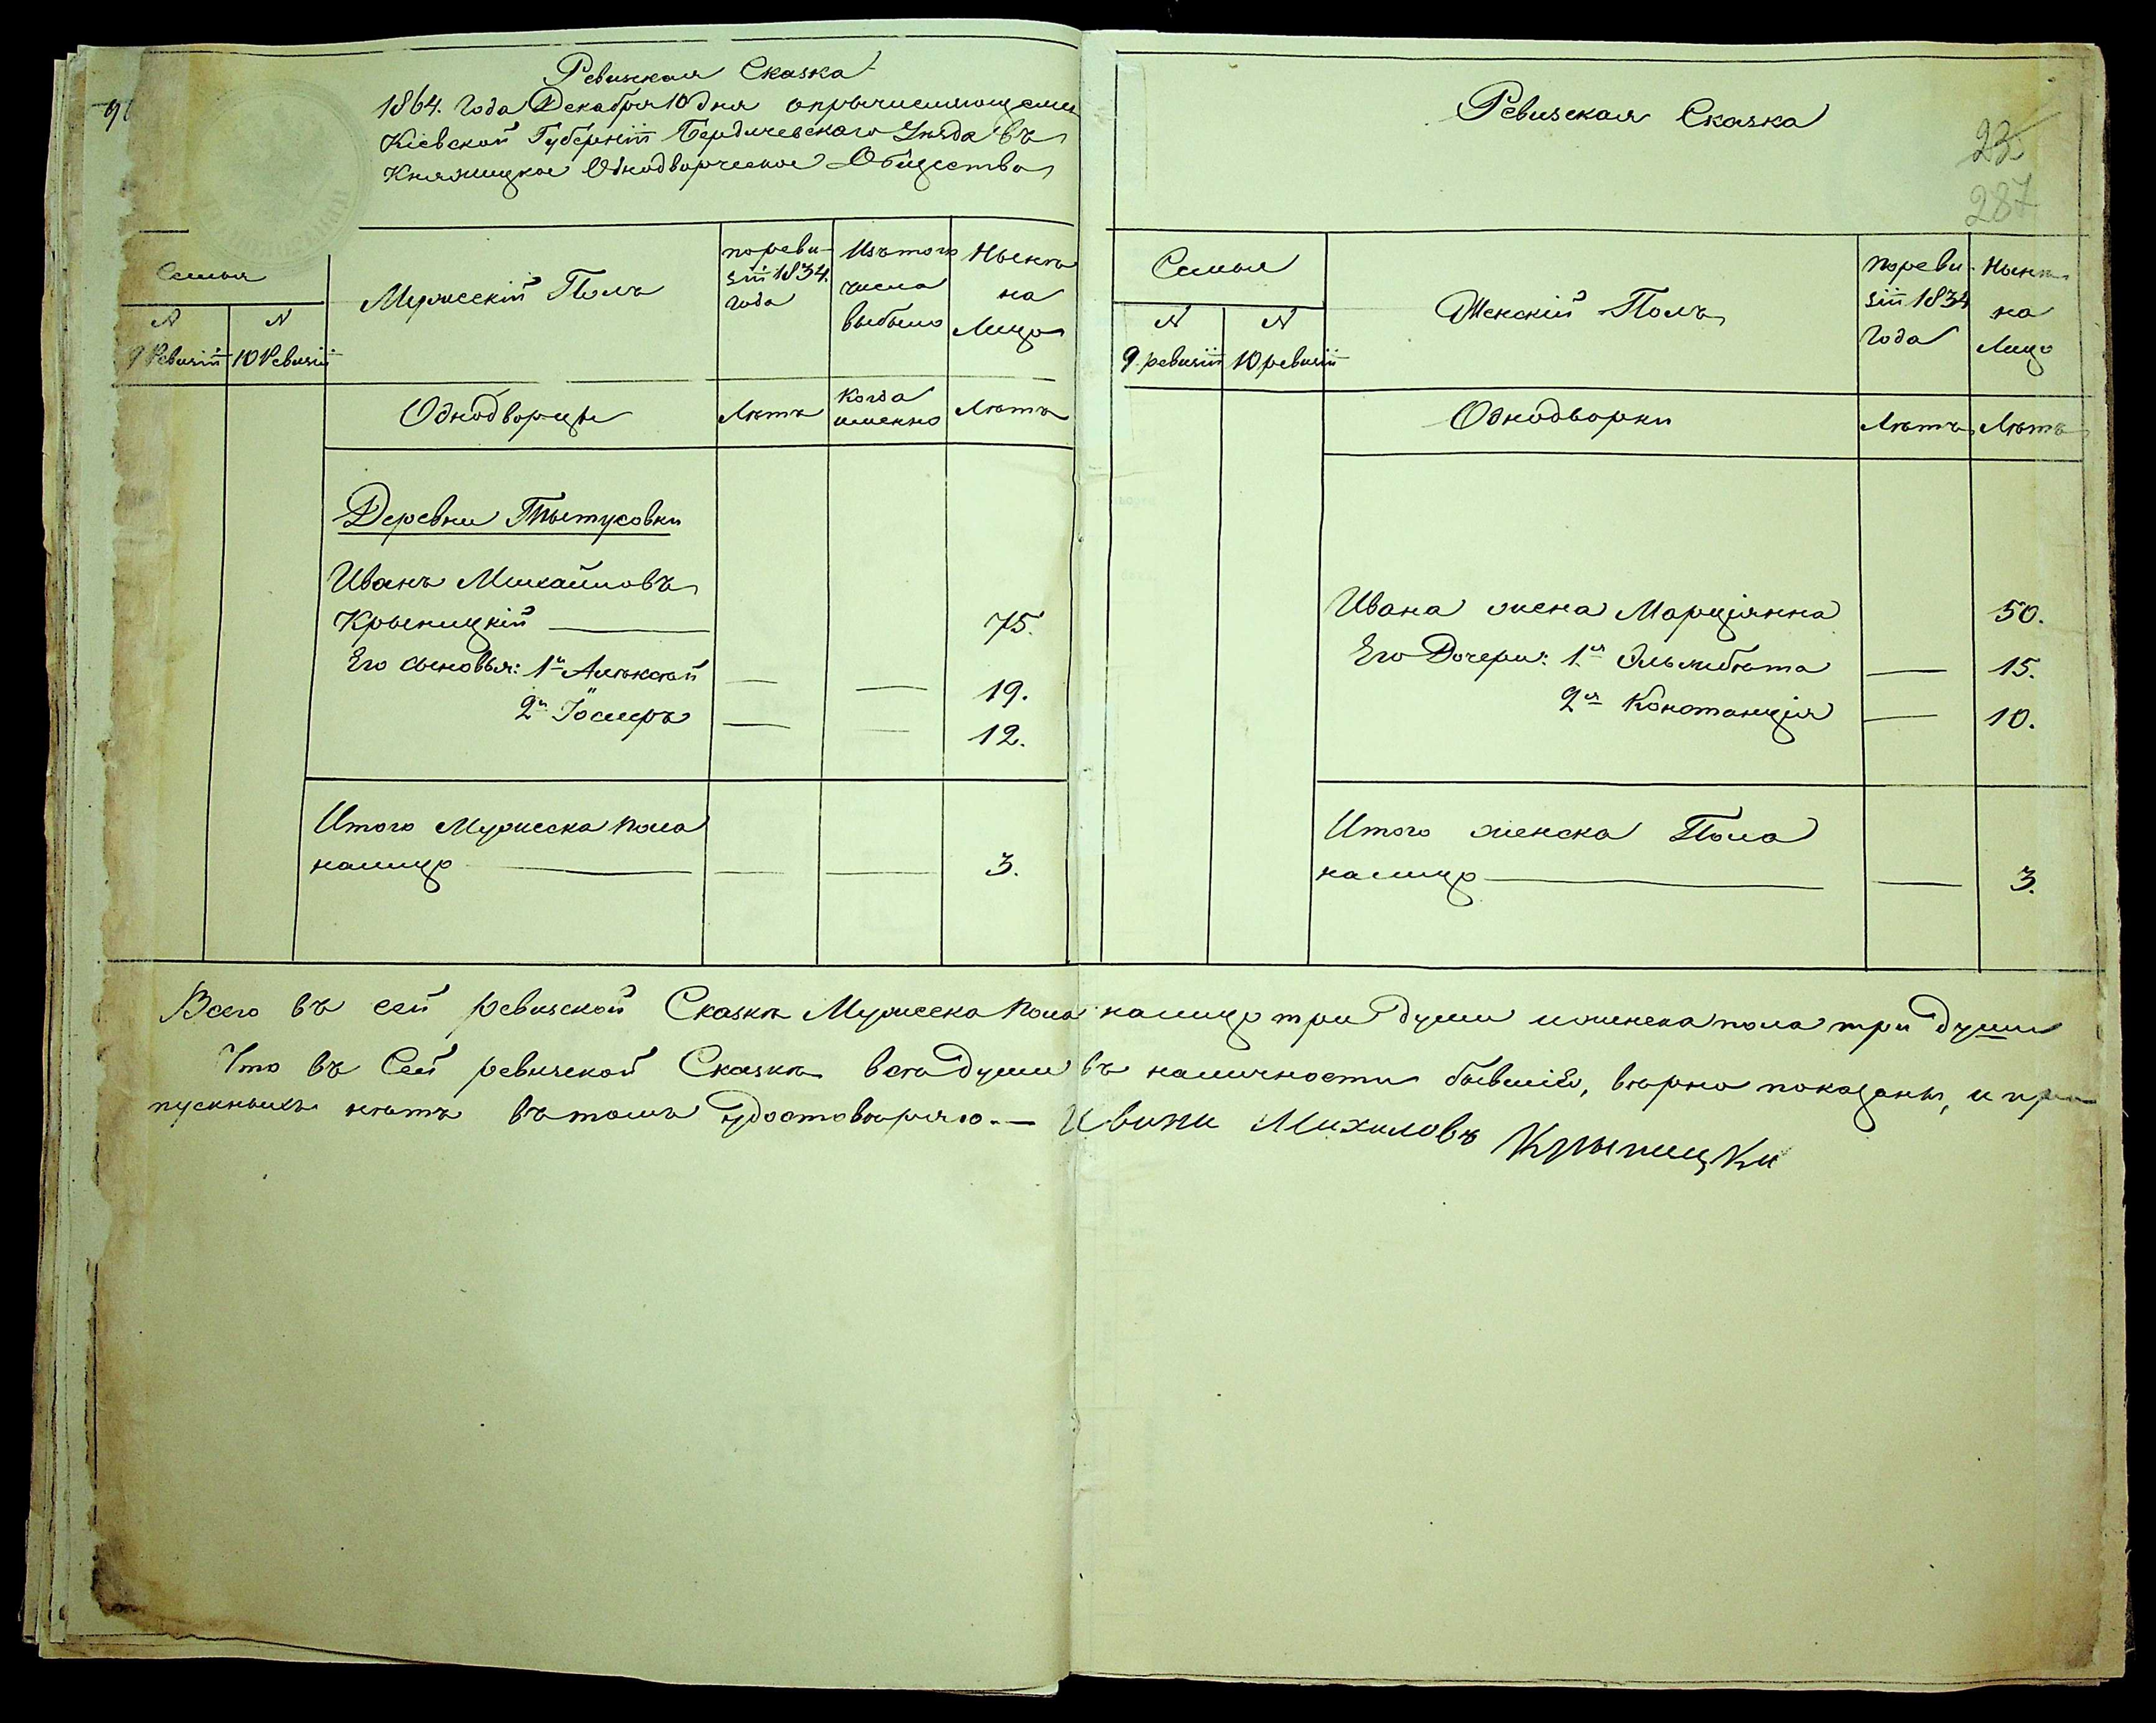 Ревизская Сказка
1864. года Декабря 10 дня опричисляющемся
Кіевской Губерніи Бердичевскаго Уѣзда въ
Княжицкое Однодворческое Общество
Семья
№
9 Ревизіи
№
10 Ревизіи
Мужескій Полъ
по реви-
зіи 1834.
года
Изъ того
числа
выбыло
Нынѣ
на
Лицо
Однодворцы
Лѣтъ
Когда
именно
Лѣтъ
Деревни Тытусовки
Иванъ Михайловъ
Крыницкій 75.
Его сыновья: 1й Алѣксѣй 19.
2й Іосифъ 12.
Итого Мужеска пола
налицо 3.
Ревизская Сказка
23
287
Семья
№
9. ревизіи
№
10 ревизіи
Женскій Полъ
по реви-
зіи 1834
года
Нынѣ
на
Лицо
Однодворки
Лѣтъ
Лѣтъ
Ивана жена Марціянна 50.
Его Дочери: 1я Эльжбѣта 15.
2я Констанція 10.
Итого женска Пола
налицо 3.
Всего въ сей ревизской Сказкѣ Мужеска пола налицо три души и женска пола три души
Что въ Сей ревизской Сказкѣ всѣ души въ наличности бывшіе, вѣрно показаны, и про-
пускныхъ нѣтъ въ томъ удостовѣряю.— Ивани Михиловъ Крыницки